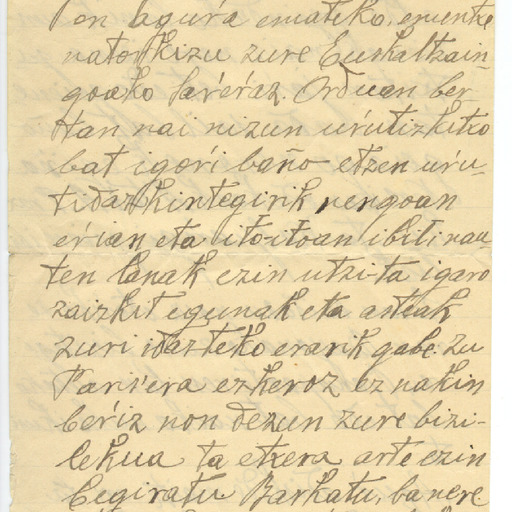 on agur'a emateko, ementxe
natorkizu zure Euskaltzain-
goako sar'er'az. Orduan ber-
tan nai nizun ur'utizkitxo
bat igor'i baño etzen ur'u-
tidazkintegirik nengoan
er'ian eta ito-itoan ibili nau-
ten lanak ezin utzi-ta igaro
zaizkit egunak eta asteak
zuri idazteko erarik gabe. Zu
Paris'era ezkeroz ez nakin
ber'iz non dezun zure bizi-
lekua ta etxera arte ezin
begiratu. Barkatu, ba nere